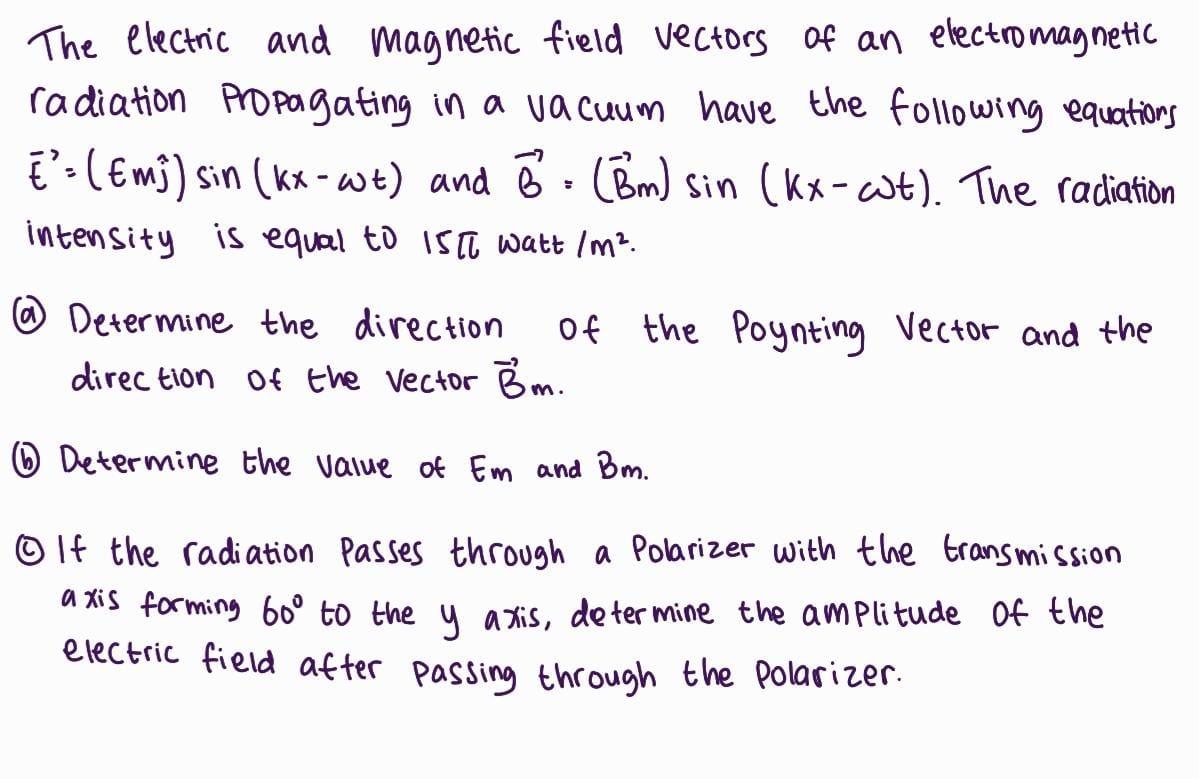 The electric and magnetic field vectors of an electromagnetic
radiation propagating in a vacuum have the following equations
E⃗ = (Emĵ) sin (kx - ωt) and B⃗ = (B⃗m) sin (kx - ωt). The radiation
intensity is equal to 15π watt /m².
ⓐ Determine the direction of the Poynting Vector and the
direction of the vector B⃗m.
ⓑ Determine the value of Em and Bm.
ⓒ If the radiation Passes through a Polarizer with the transmission
axis forming 60° to the y axis, determine the amplitude of the
electric field after passing through the Polarizer.